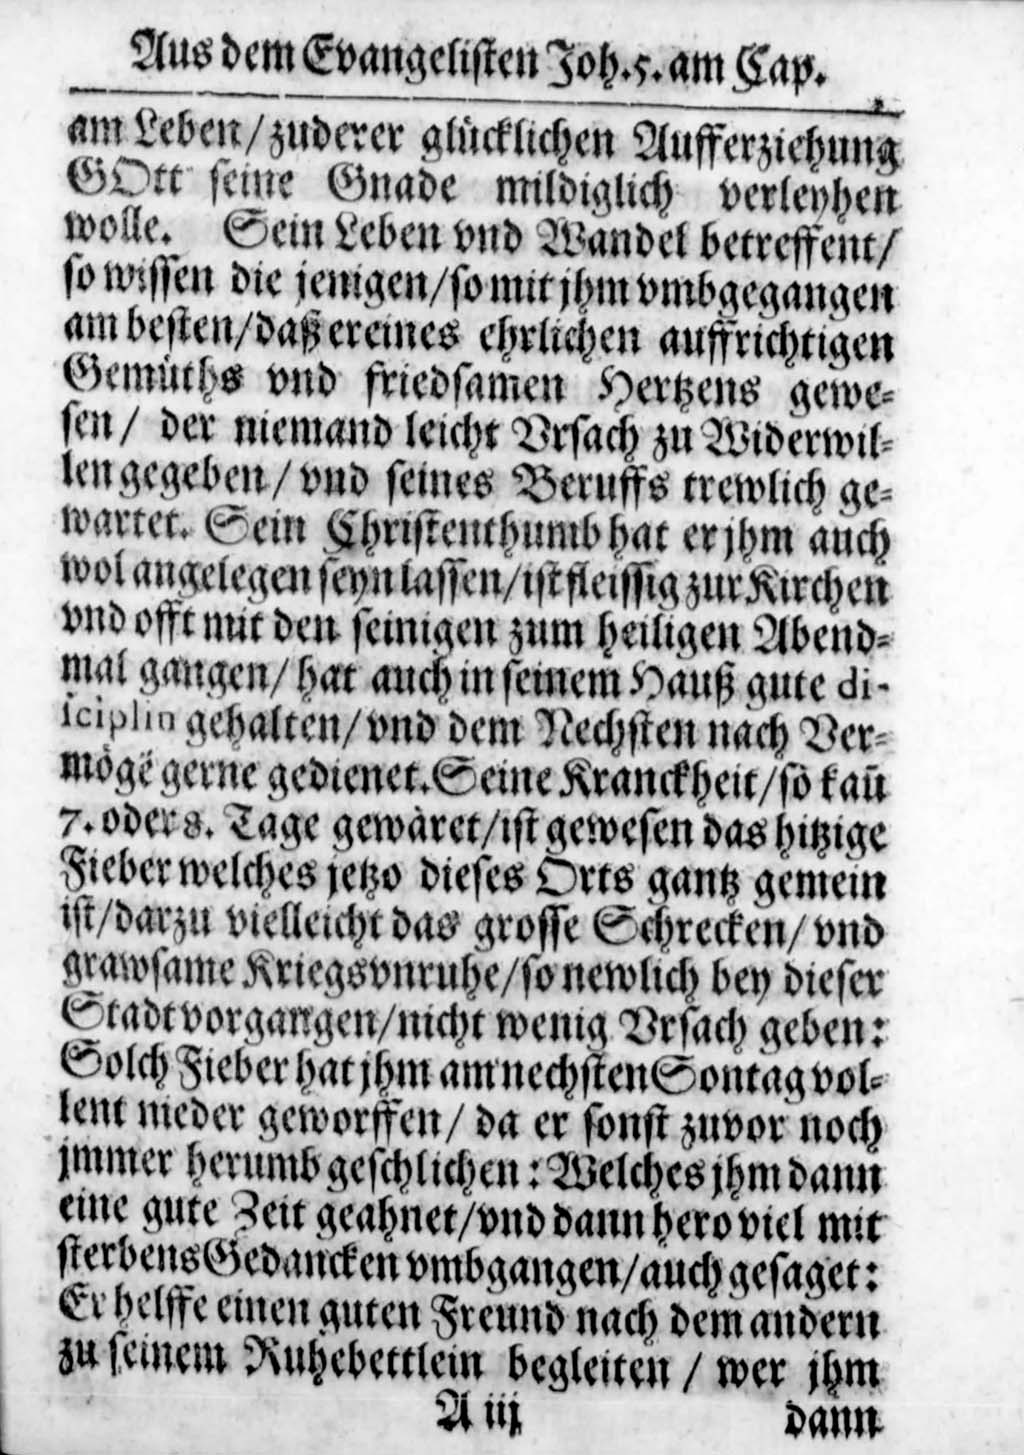 Aus dem Evangelisten Joh. 5. am Cap.
am Leben / zu derer glücklichen Aufferziehung
GOtt seine Gnade mildiglich verleyhen
wolle. Sein Leben vnd Wandel betreffent /
so wissen die jenigen / so mit jhm vmbgegangen
am besten / daß er eines ehrlichen auffrichtigen
Gemüths vnd friedsamen Hertzens gewe⸗
sen / der niemand leicht Vrsach zu Widerwil⸗
len gegeben / vnd seines Beruffs trewlich ge⸗
wartet. Sein Christenthumb hat er jhm auch
wol angelegen seyn lassen / ist fleissig zur Kirchen
vnd offt mit den seinigen zum heiligen Abend⸗
mal gangen / hat auch in seinem Hauß gute di-
sciplin gehalten / vnd dem Nechsten nach Ver⸗
mögē gerne gedienet. Seine Kranckheit / so kaū
7. oder 8. Tage gewäret / ist gewesen das hitzige
Fieber welches jetzo dieses Orts gantz gemein
ist / darzu vielleicht das grosse Schrecken / vnd
grawsame Kriegsvnruhe / so newlich bey dieser
Stadt vorgangen / nicht wenig Vrsach geben:
Solch Fieber hat jhm am nechsten Sontag vol⸗
lent nieder geworffen / da er sonst zuvor noch
jmmer herumb geschlichen: Welches jhm dann
eine gute Zeit geahnet / vnd dann hero viel mit
sterbens Gedancken vmbgangen / auch gesaget:
Er helffe einen guten Freund nach dem andern
zu seinem Ruhebettlein begleiten / wer jhm
A iij
dann